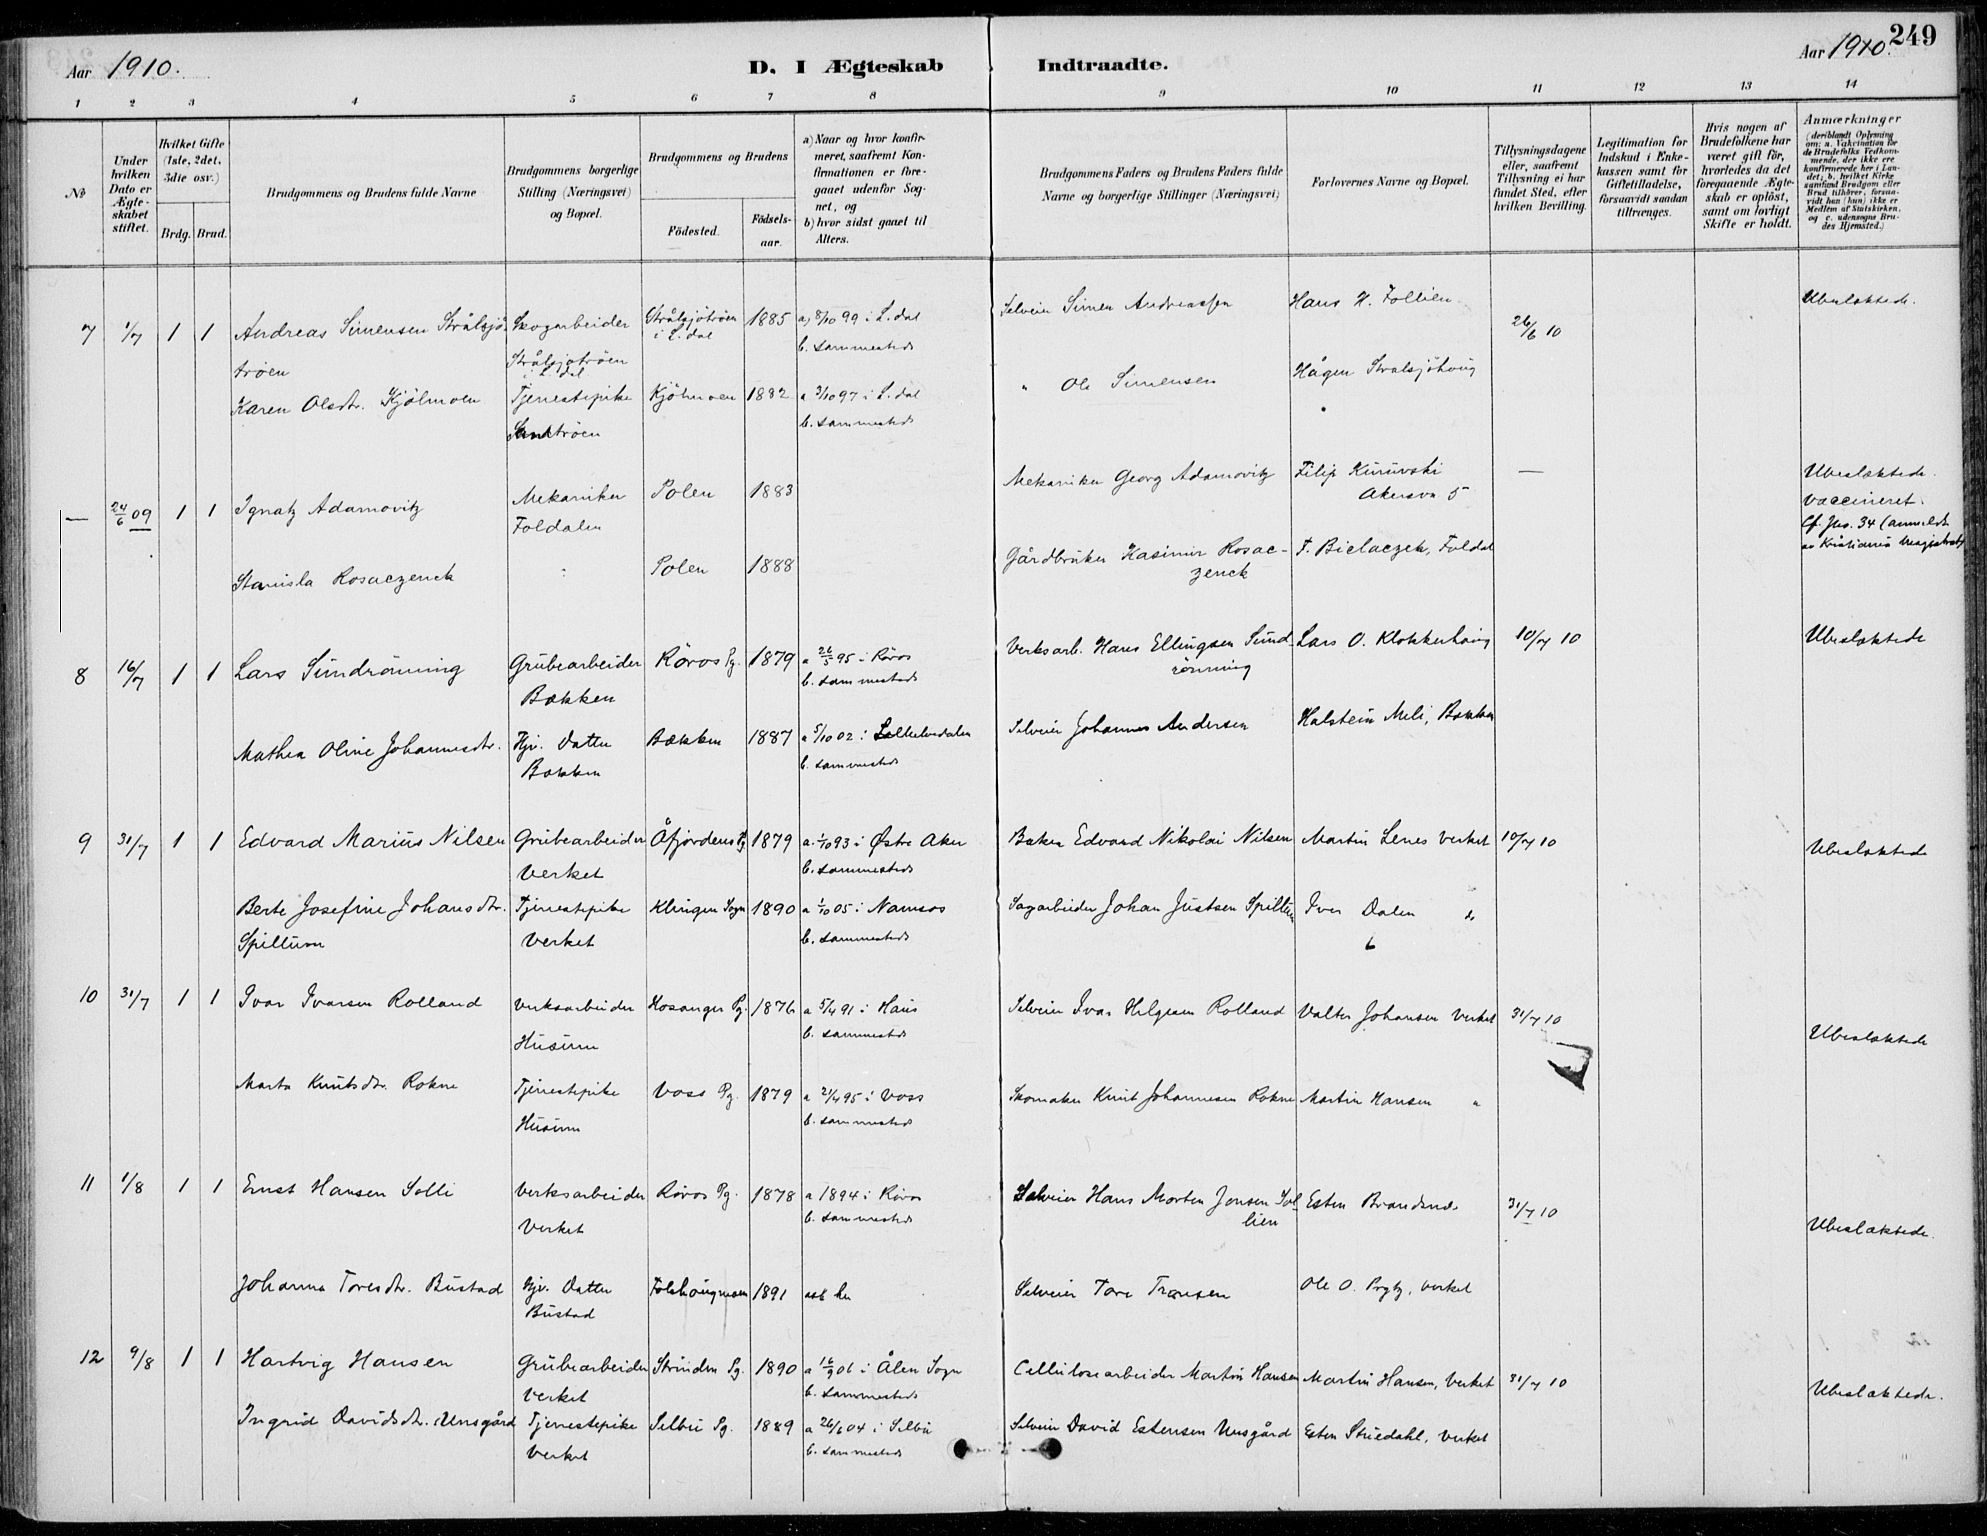 249
Aar 1910.
D. I Ægteskab Indtraadte.
Aar 1910.
1 2 3 4 5 6 7 8 9 10 11 12 13 14
No
Under hvilken Dato er Ægteskabet stiftet.
Hvilket Gifte (1ste, 2det, 3die osv.)
Brdg. Brud.
Brudgommens og Brudens fulde Navne
Brudgommens borgerlige Stilling (Næringsvei) og Bopæl.
Brudgommens og Brudens
Fødested.
Fødselsaar.
a) Naar og hvor konfirmeret, saafremt Konfirmationen er foregaaet udenfor Sognet, og
b) hvor sidst gaaet til Alters.
Brudgommens Faders og Brudens Faders fulde Navne og borgerlige Stillinger (Næringsvei)
Forlovernes Navne og Bopæl.
Tillysningsdagene eller, saafremt Tillysning ei har fundet Sted, efter hvilken Bevilling.
Legitimation for Indskud i Enkekassen samt for Giftetilladelse, forsaavidt saadan tiltrænges.
Hvis nogen af Brudefolkene har været gift før, hvorledes da det foregaaende Ægteskab er opløst, samt om lovligt Skifte er holdt.
Anmærkninger
(deriblandt Oplysning om: a. Vakcination for de Brudefolks Vedkommende, der ikke ere konfirmerede her i Landet; b. hvilket Kirkesamfund Brudgom eller Brud tilhører, forsaavidt han (hun) ikke er Medlem af Statskirken, og c. udensogns Brudes Hjemsted.)
7 1/7 1 1 Andreas Simensen Strålsjötröen Skogarbeider Strålsjötröen i L.dal Strålsjötröen i L.dal 1885 a) 8/10 99 i L.dal b. sammesteds Selveier Simen Andreassen Hans H. Follien 26/6 10 Ubeslæktede.
Karen Olsdtr. Kjölmoen Tjenestepike Kjölmoen 1882 a 3/10 97 i L.dal b. sammesteds " Ole Simensen Hågen Strålsjöhoug
— 24/6 09 1 1 Ignatz Adamovitz Mekaniker Foldalen Polen 1883 Mekaniker Georg Adamovitz Filip Kurúvski Akersvn 5 — Ubeslæktede. Vaccineret. Cf. Jno. 34 (anmeldt av Kristiania Magistrat)
Stanisla Rosaczenck Polen 1888 Gårdbruker Kasimir Rosaczenck F. Bielaczek, Foldal
8 16/7 1 1 Lars Sundrönning Grubearbeider Bækken Røros Pg. 1879 a 26/5 95 i Røros b. sammesteds Verksarb. Hans Ellingsen Sundrönning Lars O. Klokkerhaug 10/7 10 Ubeslæktede
Mathea Oline Johannesdtr. Hjv. Datter Bækken Bækken 1887 a 5/10 02 i Lilleelvedalen b. sammesteds Selveier Johannes Andersen Halstein Meli, Bækken
9 31/7 1 1 Edvard Marius Nilsen Grubearbeider Verket Åfjordens Pg 1879 a. 1/10 93 i Østre Aker b. sammesteds Baker Edvard Nikolai Nilsen Martin Lenes Verket 10/7 10 Ubeslæktede
Berte Josefine Johansdtr. Spillum Tjenestepike Verket Klingen Sogn 1890 a 1/10 05 i Namsos b. sammesteds Sagarbeider Johan Justsen Spillum Iver Dalen do
10 31/7 1 1 Ivar Ivarsen Rolland Verksarbeider Husum Hosanger Pg. 1876 a 5/4 91 i Haus b. sammesteds Selveier Ivar Helgesen Rolland Valter Johansen Verket 31/7 10 Ubeslæktede
Marta Knutsdtr. Rokne Tjenestepike Husum Voss Pg. 1879 a 21/4 95 i Voss b. sammesteds Skomaker Knut Johannesen Rokne Martin Hansen "
11 1/8 1 1 Ernst Hansen Solli Verksarbeider Verket Røros Pg. 1878 a 1894 i Røros b. sammesteds Selveier Hans Morten Jonsen Sollien Esten Brandsnes 31/7 10 Ubeslæktede.
Johanna Toresdtr. Bustad Hjv. Datter Bustad Folshougmoen 1891 a og b her Selveier Tore Tronsen Ole O. Prytz, Verket
12 9/8 1 1 Hartvig Hansen Grubearbeider Verket Strinden Pg. 1890 a 16/9 06 i Ålen Sogn b. sammesteds Cellulosearbeider Martin Hansen Martin Hansen, Verket 31/7 10 Ubeslæktede.
Ingrid Davidsdtr. Unsgård Tjenestepike Verket Selbu Pg. 1889 a 26/6 04 i Selbu b. sammesteds Selveier David Estensen Unsgård Esten Stuedahl, Verket